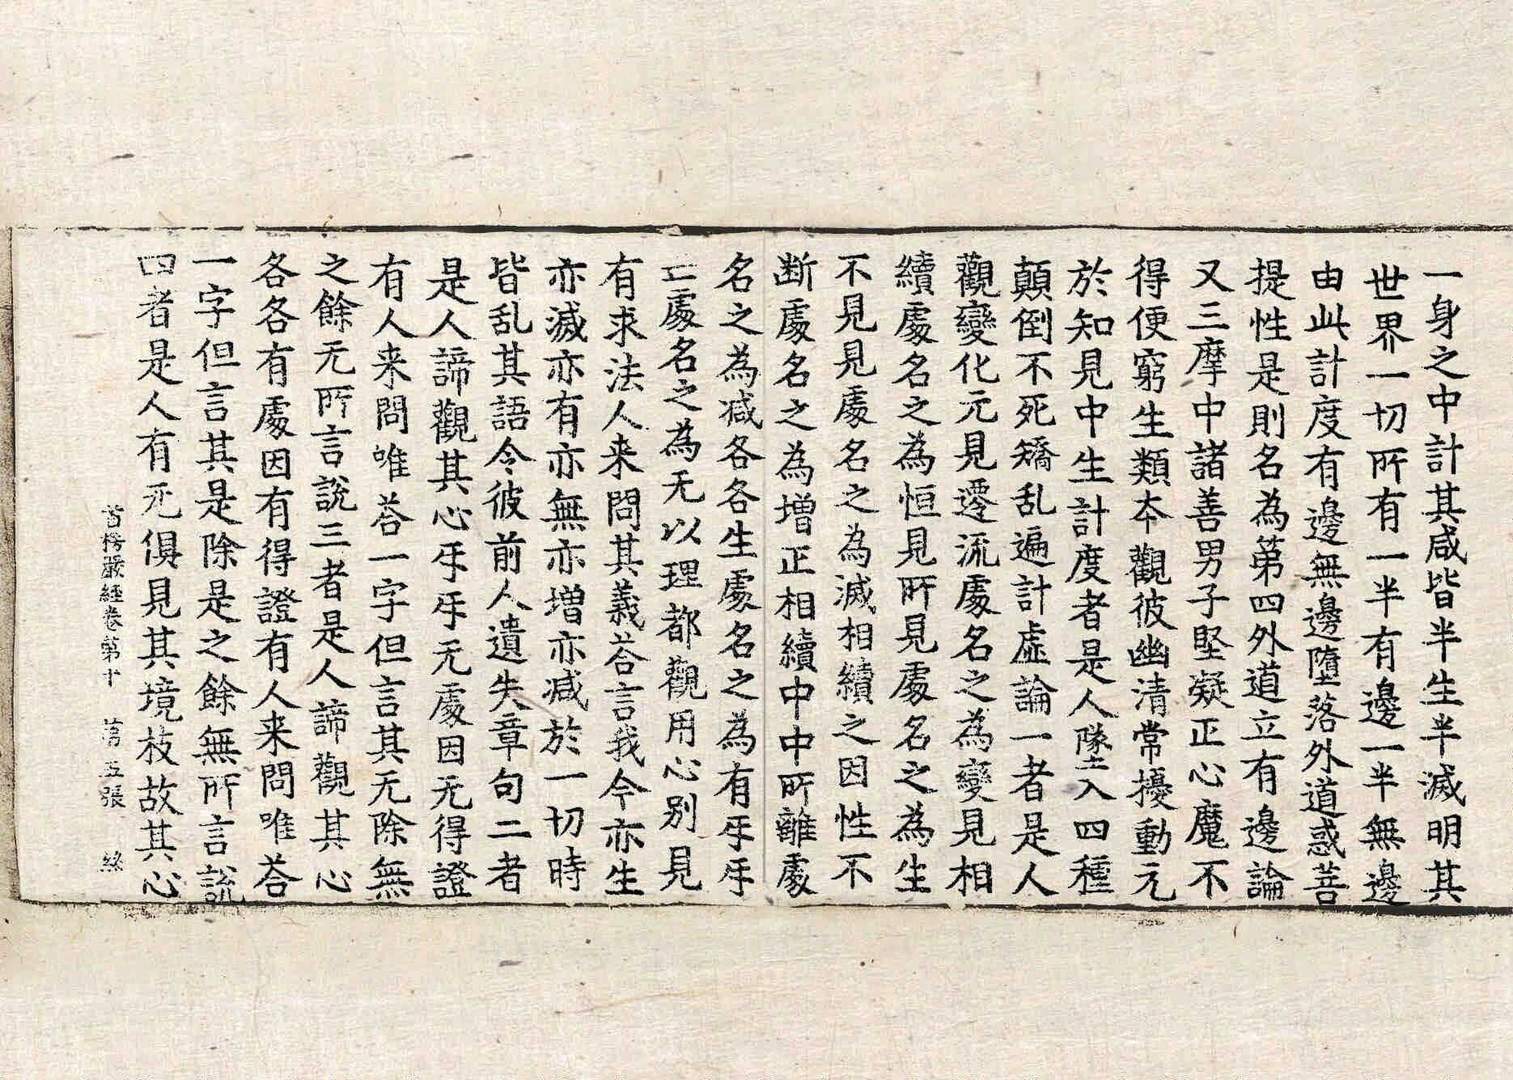 一身之中計其咸皆半生半滅明其
世界一切所有一半有邊一半無邊
由此計度有邊無邊墮落外道惑菩
提性是則名為第四外道立有邊論
又三摩中諸善男子堅凝正心魔不
得便窮生類夲觀彼幽清常擾動元
於知見中生計度者是人墜入四種
顛倒不死矯乱遍計虛論一者是人
觀變化元見遷流處名之為變見相
續處名之為恒見所見處名之為生
不見見處名之為滅相續之因性不
断處名之為增正相續中中所離處
名之為减各各生處名之為有㸦㸦
亡處名之為无以理都觀用心別見
有求法人来問其義荅言我今亦生
亦滅亦有亦無亦增亦减於一切時
皆乱其語令彼前人遺失章句二者
是人諦觀其心㸦㸦无處因无得證
有人来問唯荅一字但言其无除無
之餘无所言說三者是人諦觀其心
各各有處因有得證有人来問唯荅
一字但言其是除是之餘無所言說
四者是人有无俱見其境枝故其心
首楞嚴經卷第十 第五張 絲